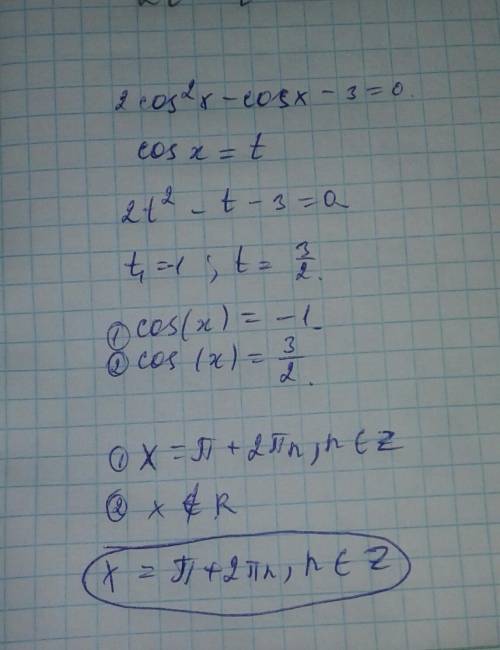 2 cos²x - cosx - 3 = 0.
cos x = t
2t² - t - 3 = 0
t₁ = -1 ; t = 3/2.
① cos(x) = -1
② cos (x) = 3/2.
① X = π + 2πn, n ∈ Z
② x ∉ R
X = π + 2πn, n ∈ Z